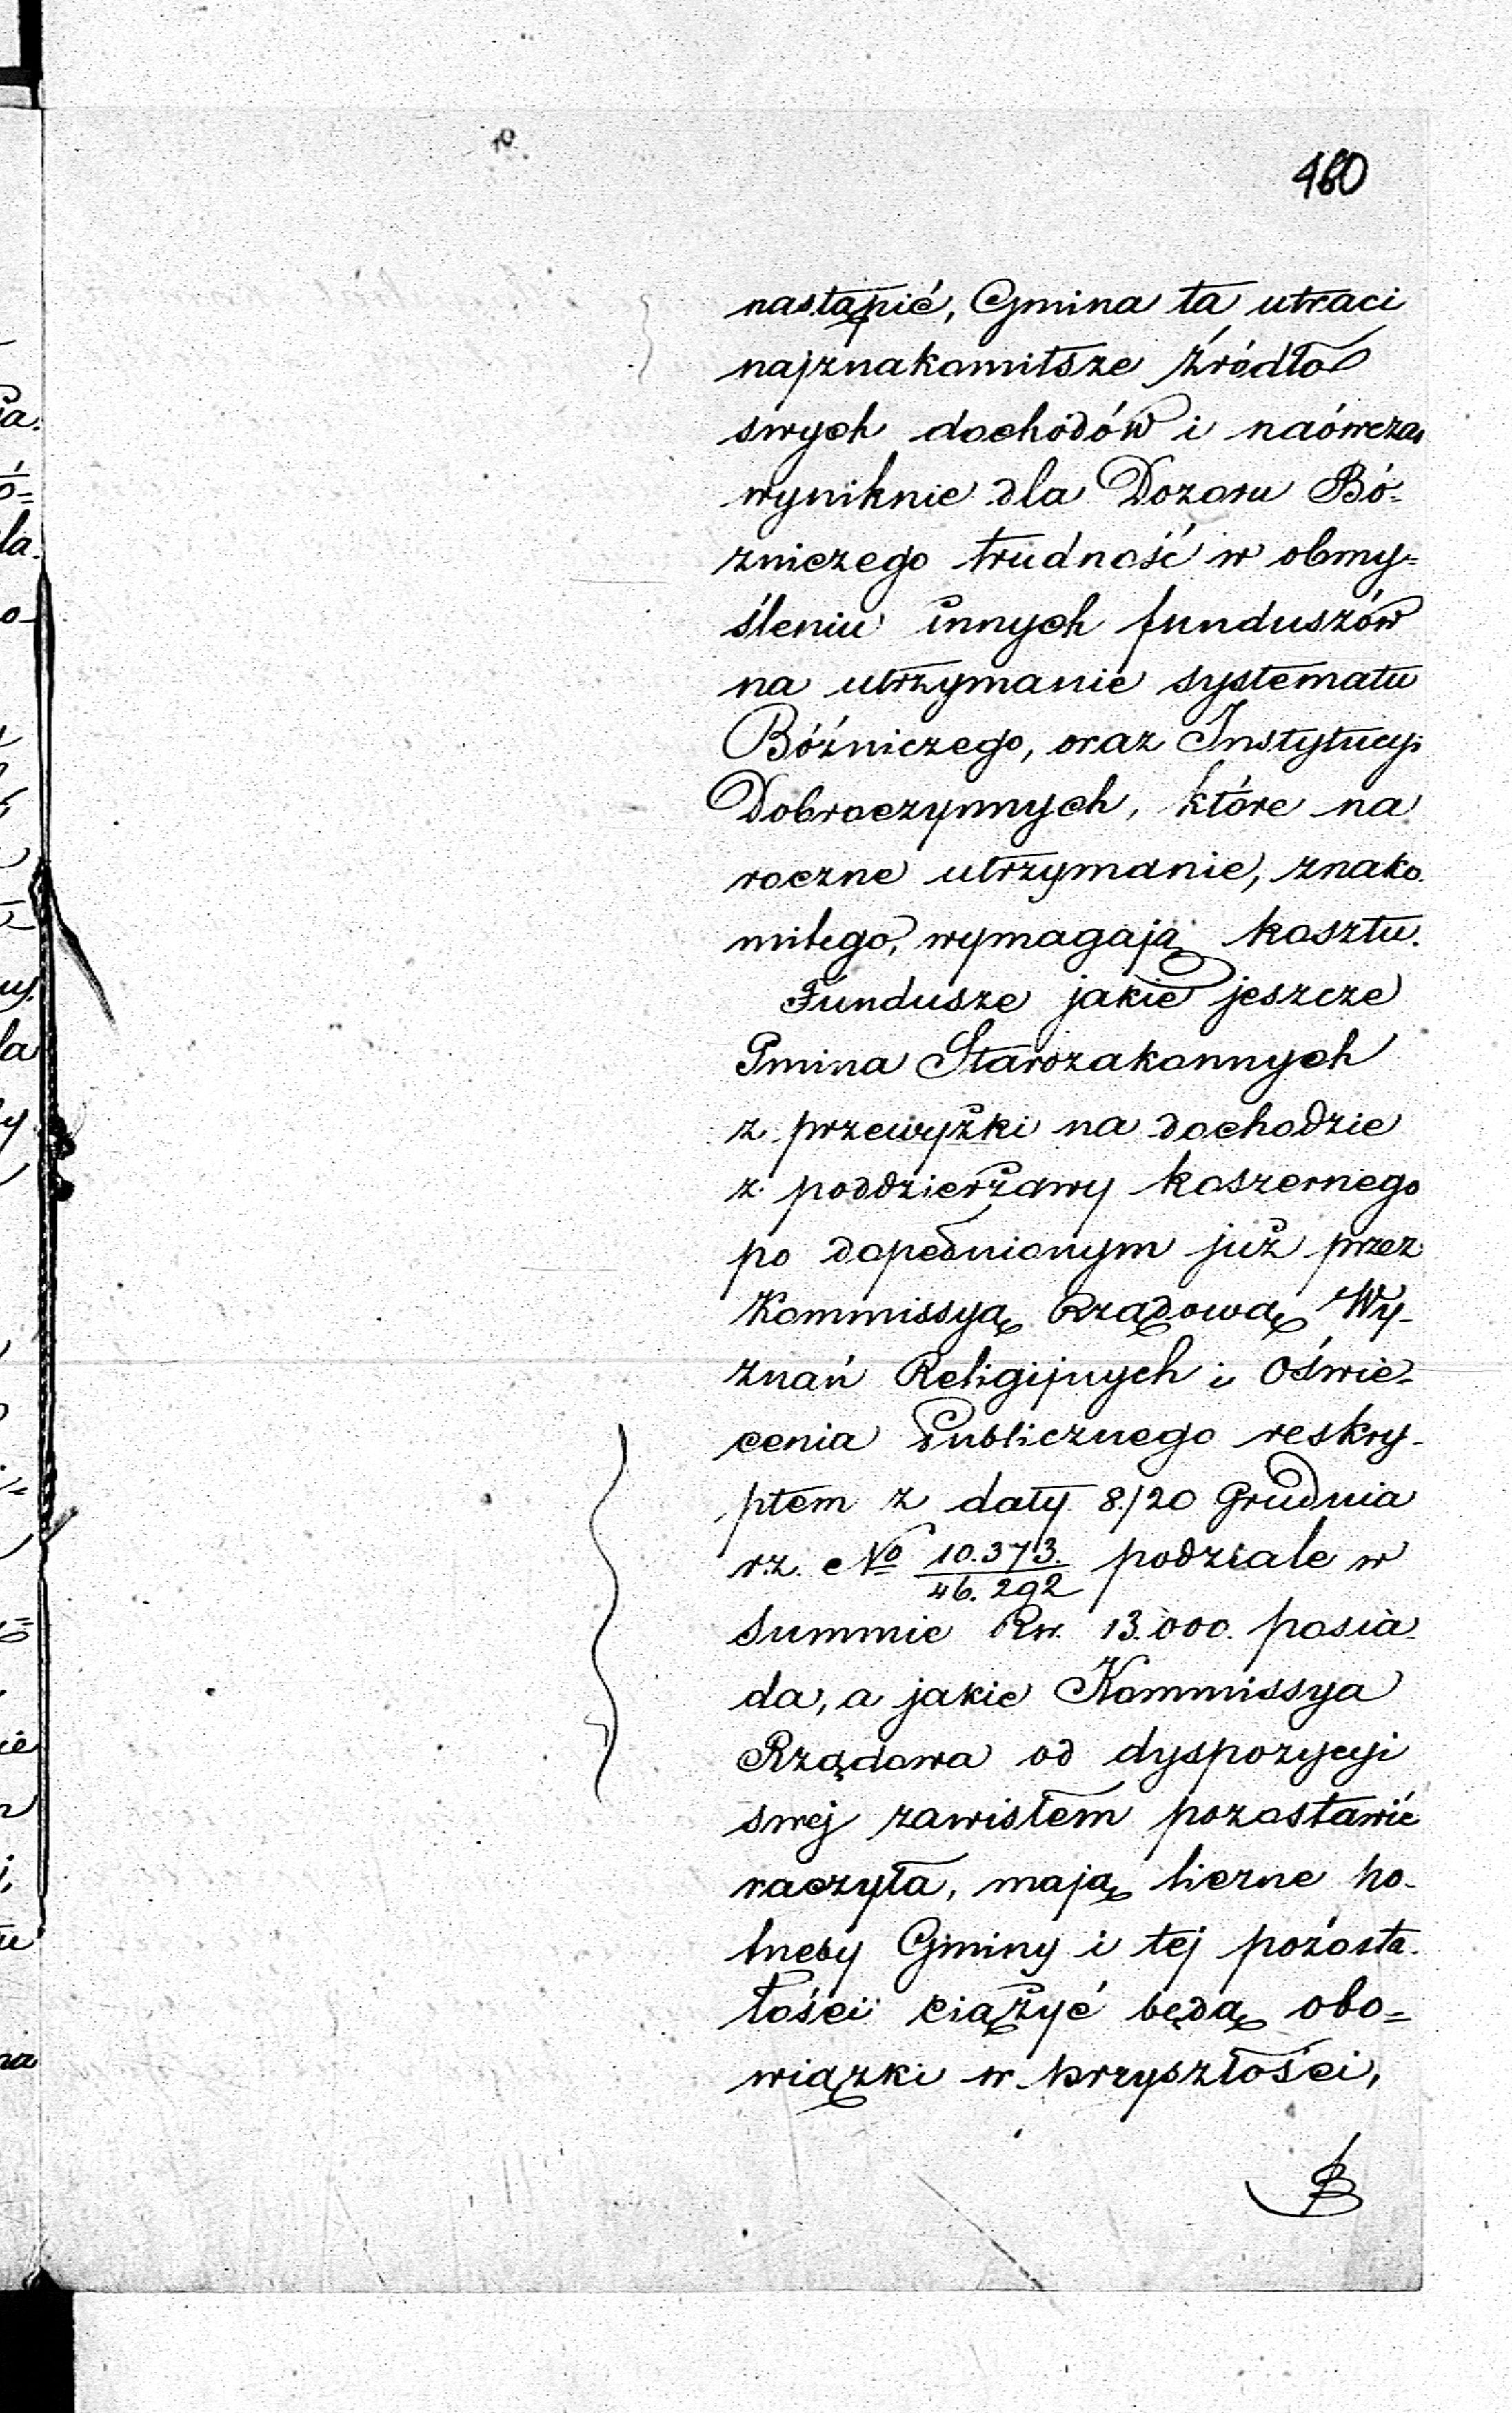 460
nastąpić, Gmina ta utraci
najznakomitsze źródło
swych dochodów i naówczas
wyniknie dla Dozoru Bó-
zniczego trudność w obmy=
śleniu innych funduszów
na utrzymanie systematu
Bóźniczego, oraz Instytucyi
Dobroczynnych, które na
roczne utrzymanie, znako-
mitego, wymagają kosztu.
Fundusze jakie jeszcze
Gmina Starozakonnych
z przewyżki na dochodzie
z poddzierżawy koszernego
po dopełnionym już przez
Kommissyą Rządową Wy-
znań Religijnych i Oświe-
cenia Publicznego reskry-
ptem z daty 8/20 Grudnia
r.z. No 10.373./46.292 podziale w
Summie Rs. 13.000. posia-
da, a jakie Kommissya
Rządowa od dyspozycyi
swej zawisłem pozostawić
raczyła, mają liczne po-
trzeby Gminy i tej pozosta-
łości ciążyć będą obo=
wiązki w przyszłości,